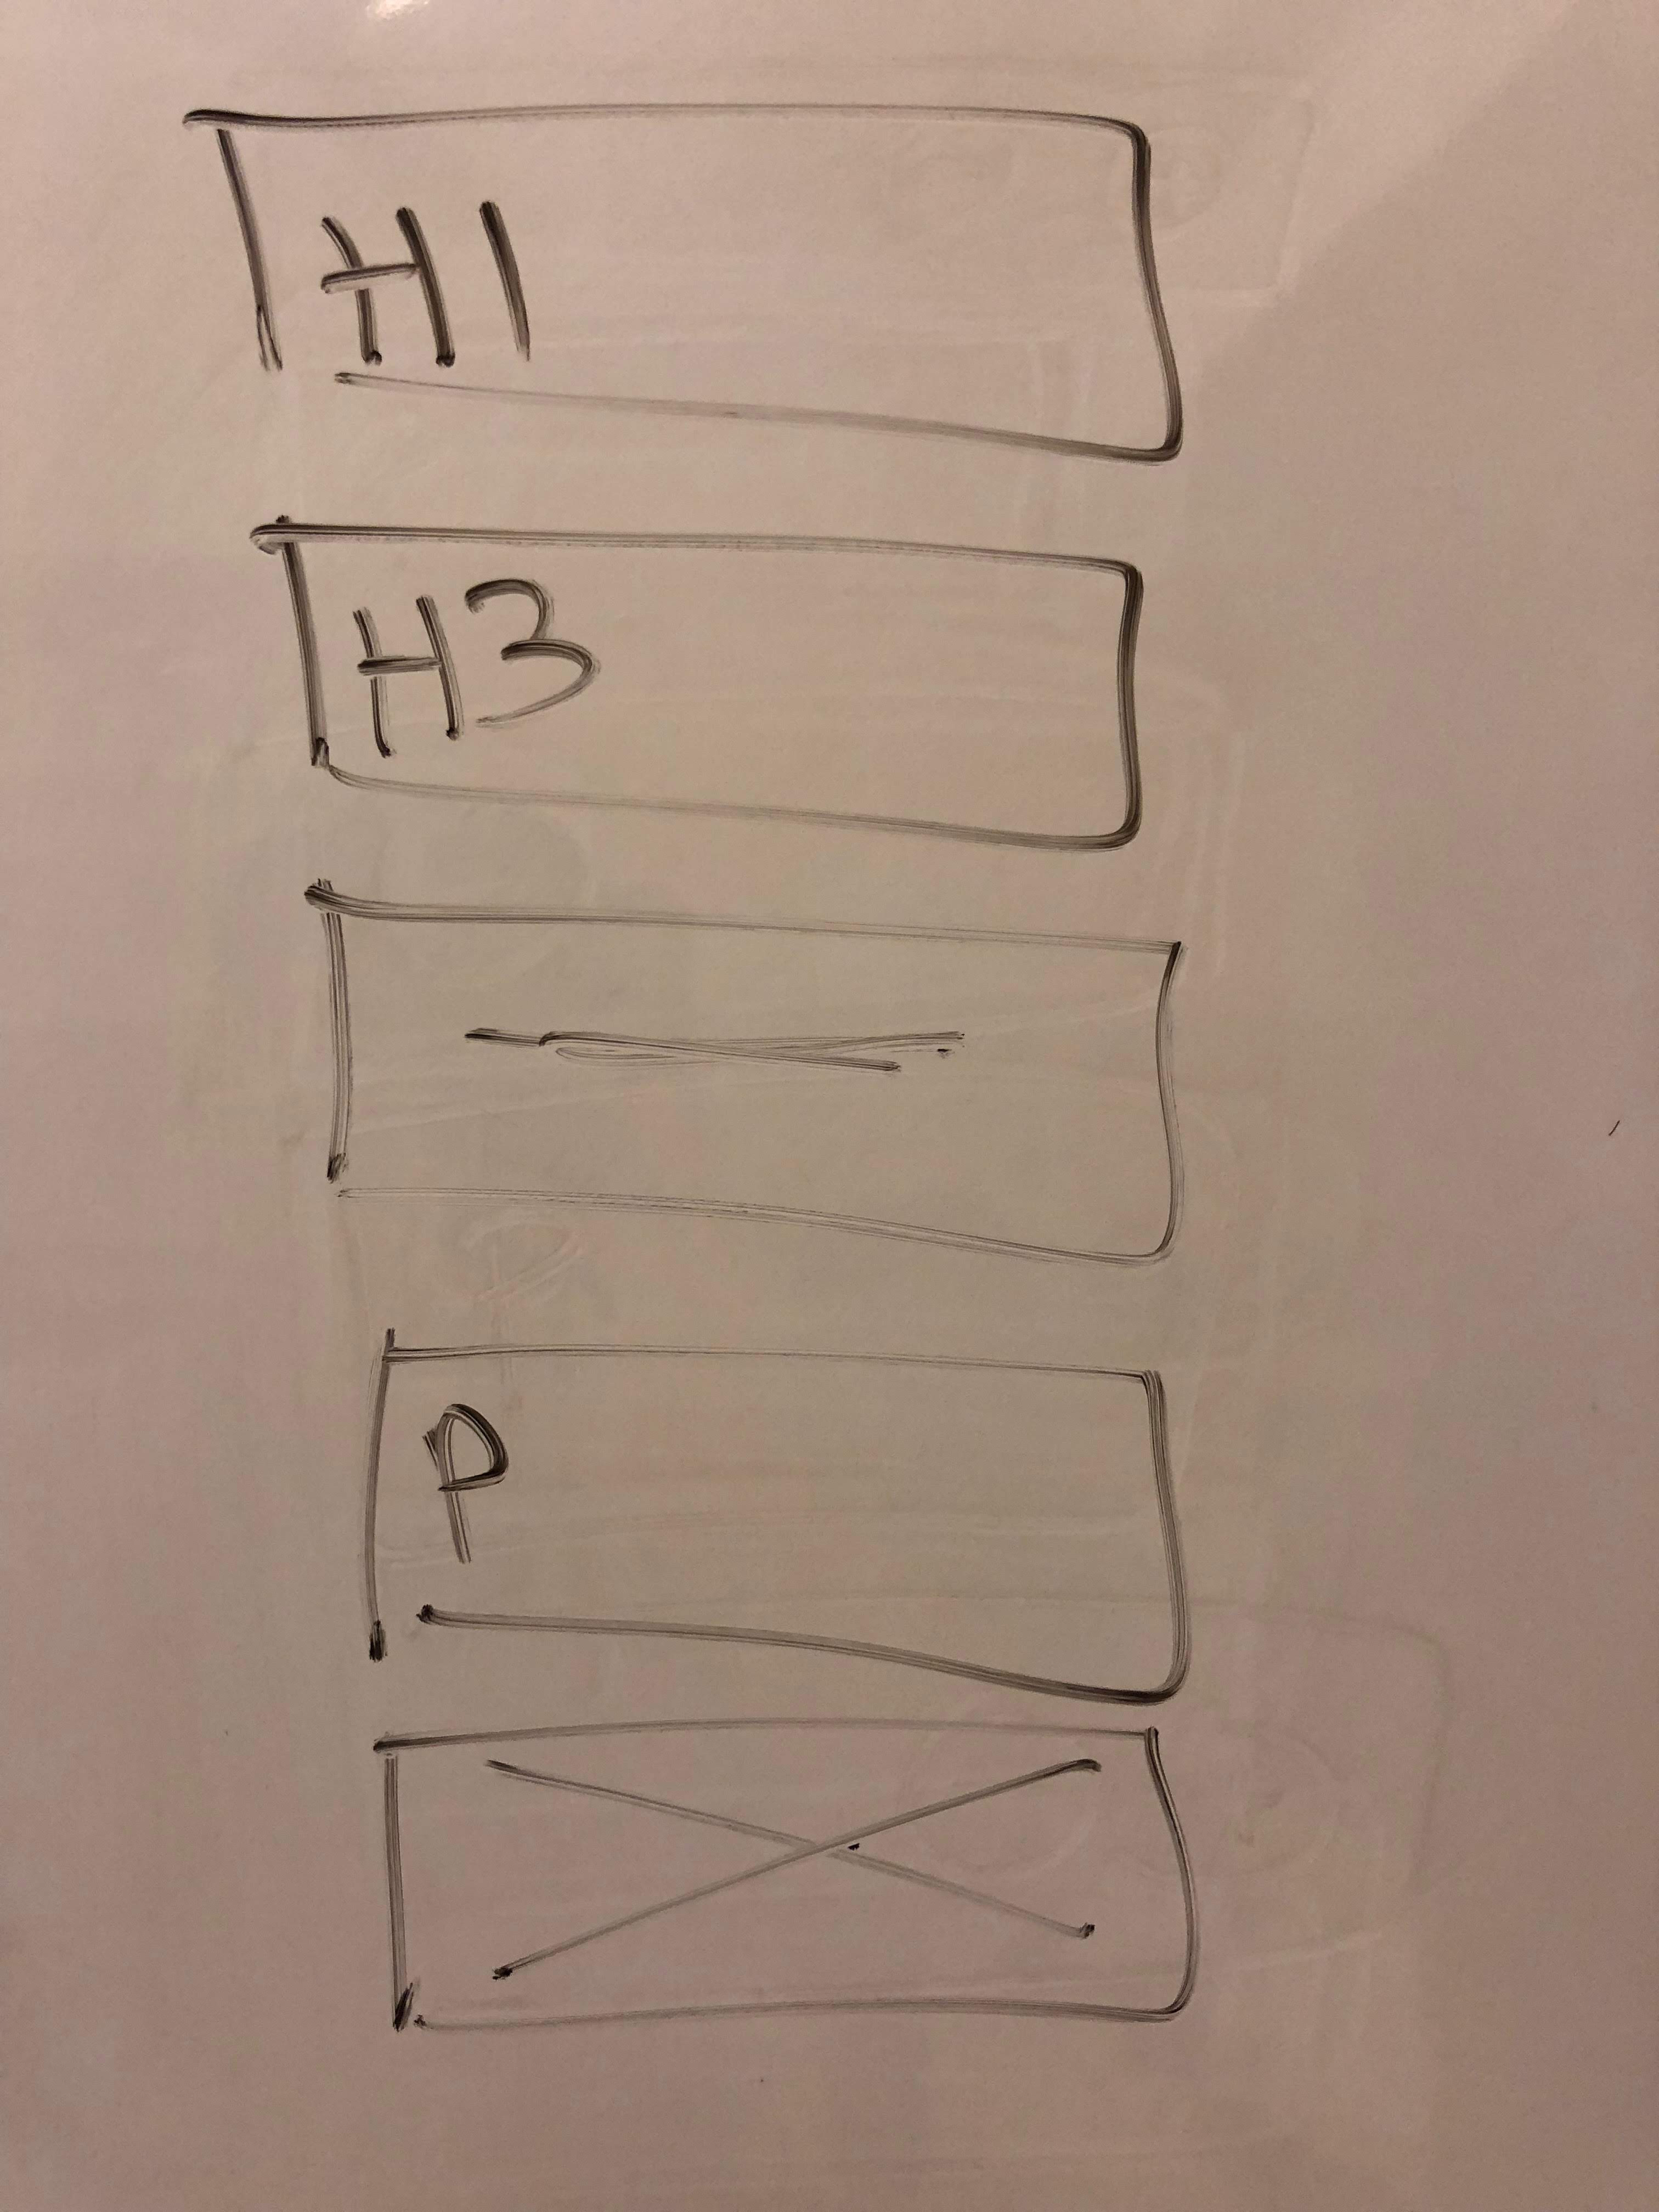 H1
H3
P